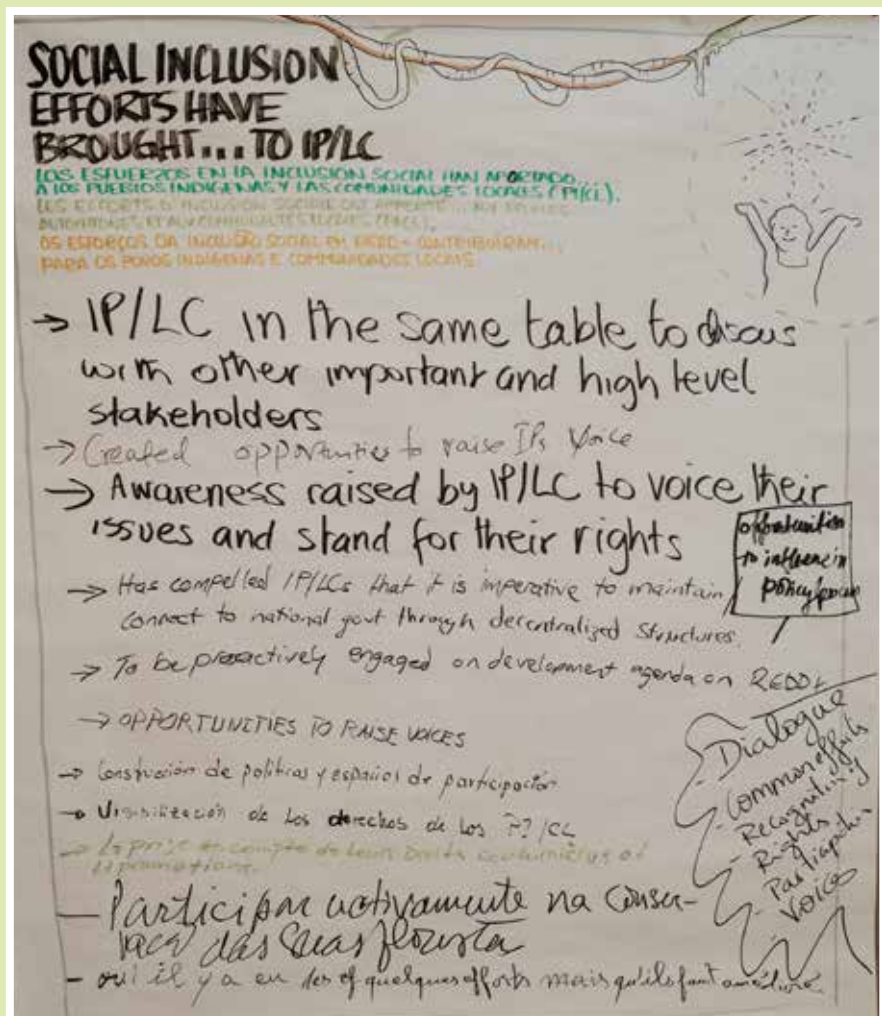 SOCIAL INCLUSION
EFFORTS HAVE
BROUGHT... TO IP/LC
LOS ESFUERZOS EN LA INCLUSION SOCIAL HAN APORTADO...
A LOS PUEBLOS INDIGENAS Y LAS COMUNIDADES LOCALES (PI/CL).
LES EFFORTS D'INCLUSION SOCIALE ONT APPORTÉ... AUX
AUTOCHTONES ET AUX COMMUNAUTÉS LOCALES (PACL).
OS ESFORÇOS DA INCLUSÃO SOCIAL EM REDD+ CONTRIBUIRAM...
PARA OS POVOS INDIGENAS E COMMUNIDADES LOCAIS.
→ IP/LC in the same table to discus
with other important and high level
stakeholders
→ Created opportunities to raise IPs Voice
→ Awareness raised by IP/LC to voice their
issues and stand for their rights
opportunities
to influence in
policy
→ Has compelled IP/LCs that it is imperative to maintain
connect to national govt through decentralized structures.
→ To be proactively engaged on development agenda on REDD+
→ OPPORTUNITIES TO RAISE VOICES
→ Construción de politicas y espacios de participación
→ Visibilización de los derechos de los PI/CL
→ La prise en compte de leurs droits et
promotions.
— Participar activamente na conser-
vaca das suas floresta
- oui il y a eu des quelques efforts mais qu'ils faut
- Dialogue
- Common efforts
- Recognition
- Rights
- Participation
- Voices